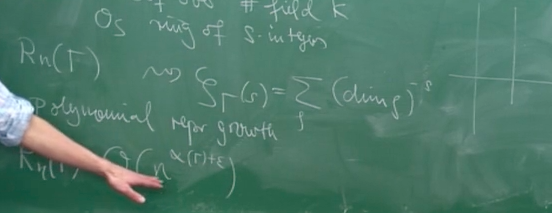 # field k
O_S ring of S-integers
R_n(Γ) ⇝ ζ_Γ(s) = Σ_ρ (dim ρ)^{-s}
Polynomial repr growth
R_n(Γ) O(n^{α(Γ)+ε})